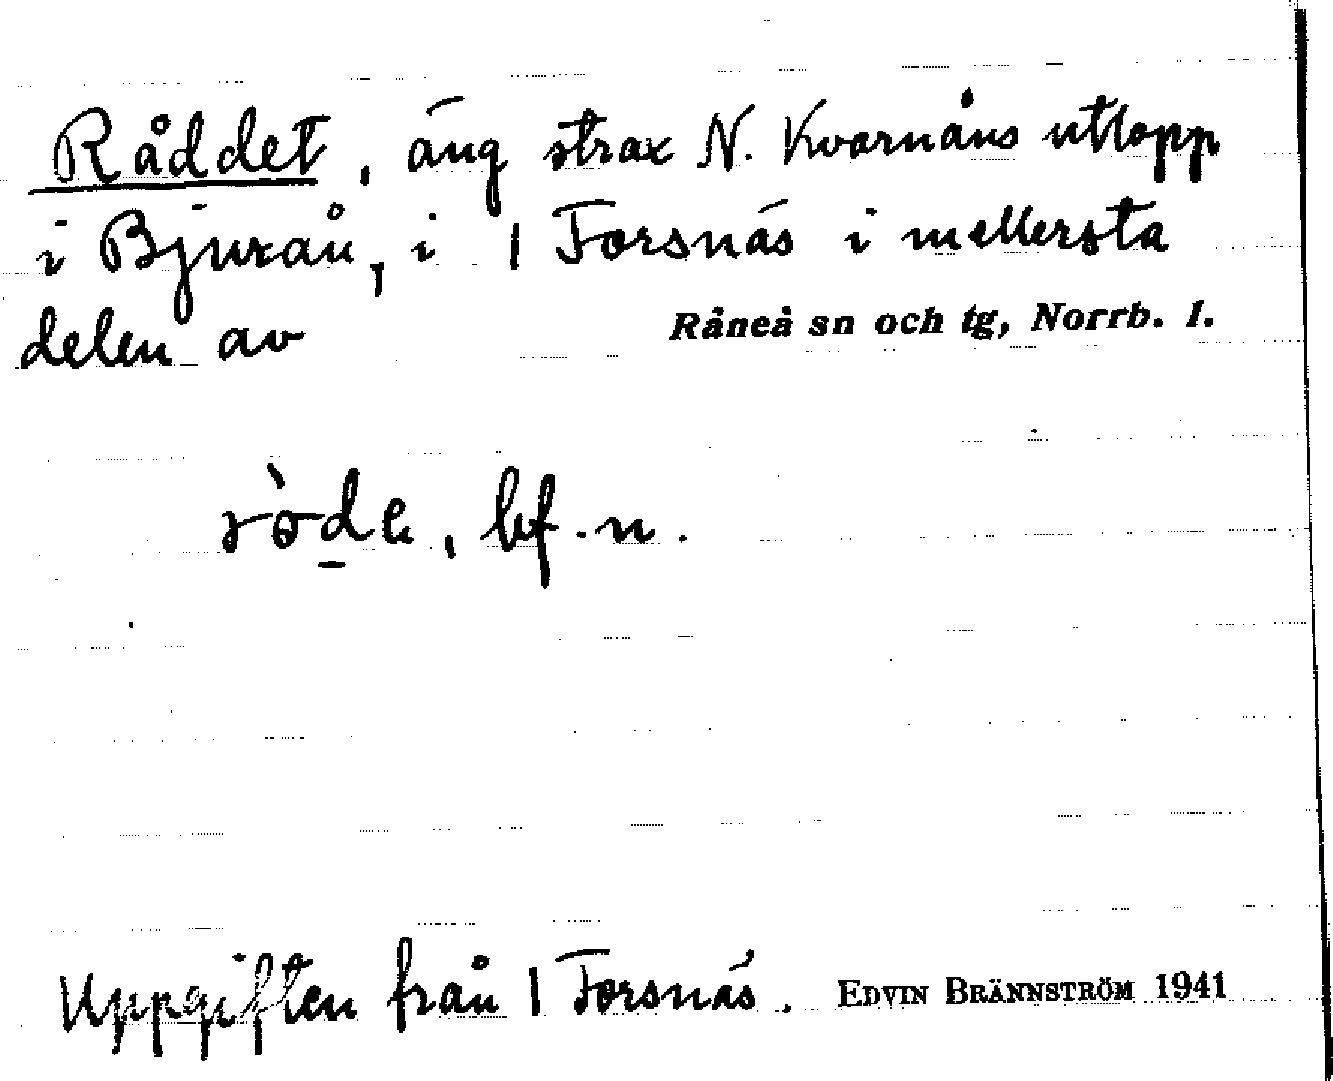 Råddet, äng strax N. Kvarnåns utlopp
i Bjuraån, i 1 Forsnäs i mellersta
delen av Råneå sn och tg, Norrb. l.
ròde, bf. n.
Uppgiften från 1 Forsnäs. EDVIN BRÄNNSTRÖM 1941